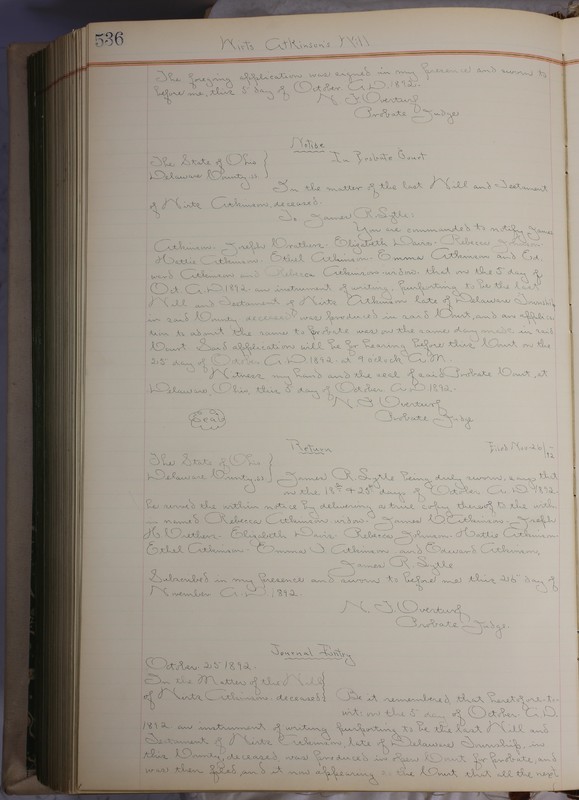 536
Wirts Atkinson's Will
The foregoing application was signed in my presence and sworn to
before me, this 5 day of October A.D. 1892.
N. F. Overturf
Probate Judge
Notice
The State of Ohio } In Probate Court
Delaware County, ss.
In the matter of the last Will and Testament
of Wirtz Atkinson, deceased.
To James R. Lytle:
You are commanded to notify James
Atkinson, Joseph Elizabeth Rebecca
Hattie Atkinson, Ethel Atkinson, Emma Atkinson and Ed-
ward Atkinson and Rebecca Atkinson widow, that on the 5 day of
Oct. A.D. 1892 an instrument of writing, purporting to be the last
Will and Testament of Wirtz Atkinson late of Delaware Township
in said County deceased was produced in said Court, and an applica-
tion to admit the same to probate was on the same day made in said
Court. Said application will be for hearing before this Court on the
25 day of October A.D. 1892. at 9 o'clock A.M.
Witness my hand and the seal of said Probate Court, at
Delaware, Ohio, this 5 day of October A.D. 1892.
N. F. Overturf
Seal
Probate Judge
Return
Filed Nov 26/92
The State of Ohio }
Delaware County, ss } James R. Lytle being duly sworn, says that
on the 18th & 20th days of October A.D. 1892
he served the within notice by delivering a true copy thereof to the with-
in named Rebecca Atkinson widow, James Atkinson, Joseph
Elizabeth Rebecca Johnson Hattie Atkinson
Ethel Atkinson Emma J. Atkinson and Edward Atkinson,
James R. Lytle
Subscribed in my presence and sworn to before me this 26 day of
November A.D. 1892.
N. F. Overturf
Probate Judge.
Journal Entry
October 25 1892.
In the Matter of the Will }
of Wirtz Atkinson, deceased } Be it remembered that heretofore-to-
wit: on the 5 day of October A.D.
1892 an instrument of writing purporting to be the last Will and
Testament of Wirtz Atkinson, late of Delaware Township, in
this County, deceased, was produced in open Court for probate, and
was then filed, and it now appearing to the Court that all the next